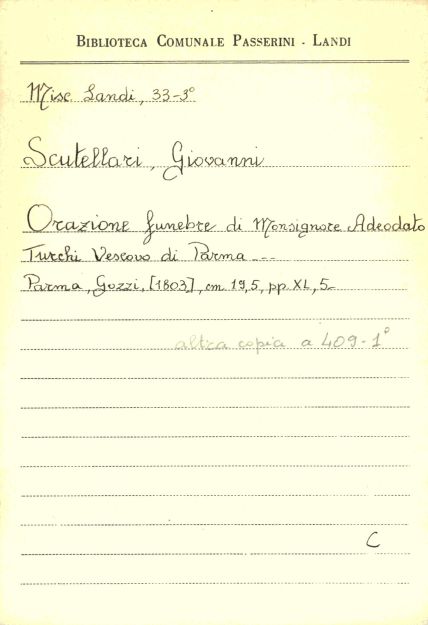 BIBLIOTECA COMUNALE PASSERINI - LANDI
Misc. Landi, 33-3°
Scutellari, Giovanni
Orazione funebre di Monsignore Adeodato
Turchi Vescovo di Parma ---
Parma, Gozzi, [1803], cm. 19,5, pp. XL, 5-
altra copia a 409-1°
C